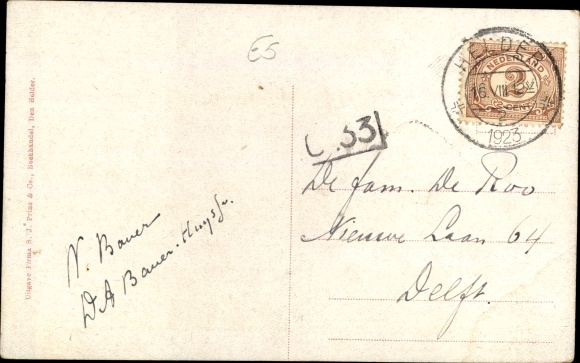 E5
HELDER
NEDERLAND
2
CENT
16 VIII
1923
L.53
De fam. De Roo
Nieuwe Laan 64
Delft.
N. Bauer
D A Bauer-Huyss
Uitgave Firma S. J. Prins & Co., Boekhandel, Den Helder.